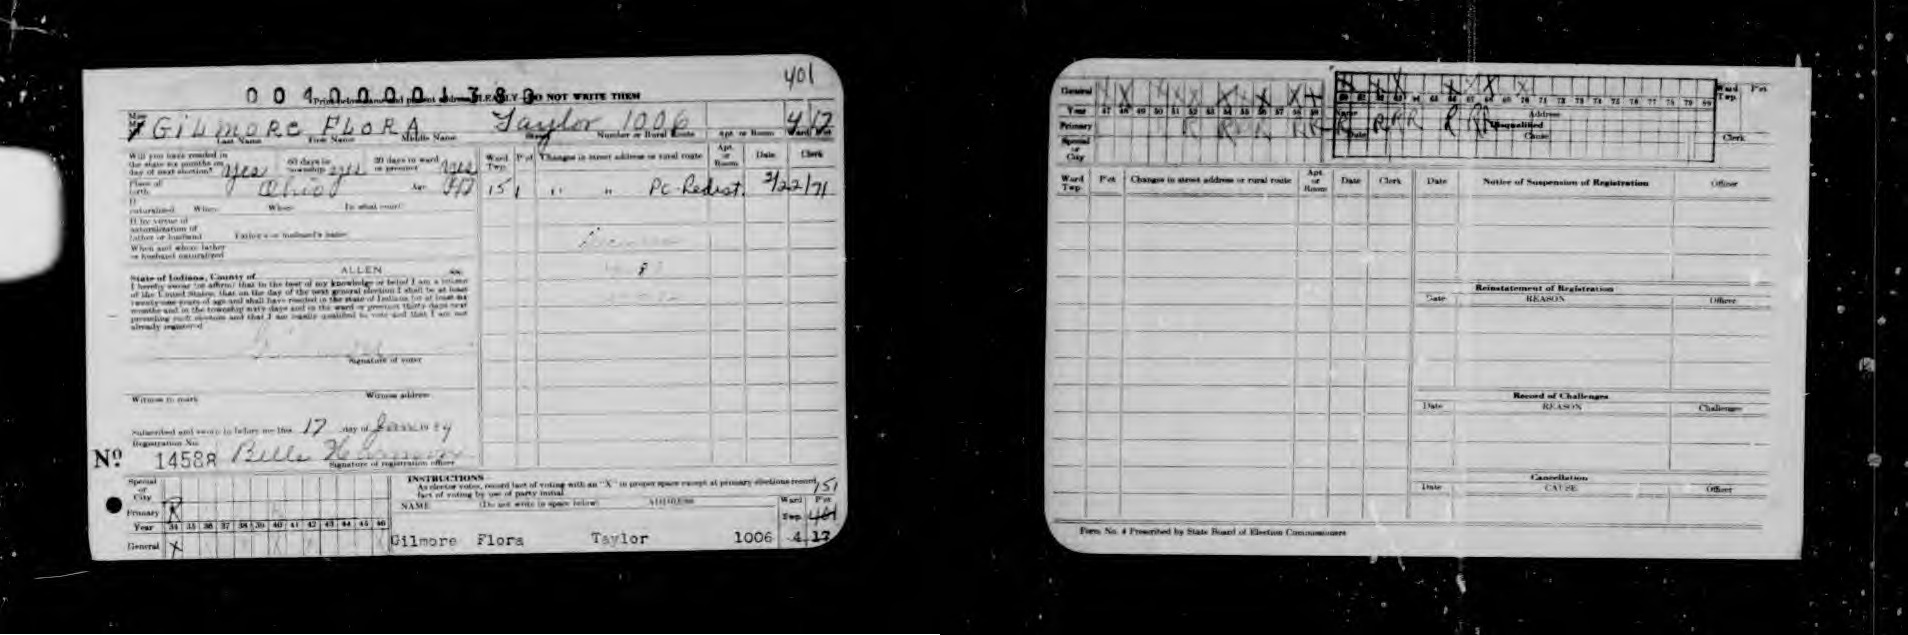 401
004000001380
Print below name and present address CLEARLY DO NOT WRITE THEM
GILMORE FLORA Taylor 1006 4 17
Last Name First Name Middle Name Street Number or Rural Route Apt. or Room Ward Pct
Will you have resided in the state six months on day of next election? yes 60 days in township yes 30 days in ward or precinct yes
Place of birth Ohio Age
If naturalized When Where In what court
If by virtue of naturalization of father or husband Father's or husband's name
When and where father or husband naturalized
Ward Twp. Pct Changes in street address or rural route Apt. or Room Date Clerk
151 " " Pc-Redist. 3/22/71
State of Indiana, County of ALLEN ss.
I hereby swear (or affirm) that to the best of my knowledge or belief I am a citizen
of the United States; that on the day of the next general election I shall be at least
twenty-one years of age and shall have resided in the state of Indiana for at least six
months and in the township sixty days and in the ward or precinct thirty days next
preceding such election and that I am legally qualified to vote and that I am not
already registered
Signature of voter
Witness to mark Witness address
Subscribed and sworn to before me this 17 day of Jan 19
Registration No.
No 14588 Belle
Signature of registration officer
Special or City
Primary R
Year 34 35 36 37 38 39 40 41 42 43 44 45 46
General X
INSTRUCTIONS
As elector votes, record fact of voting with an "X" in proper space except at primary elections record
fact of voting by use of party initial
151
NAME (Do not write in space below) ADDRESS Ward Twp. Pct
401
Gilmore Flora Taylor 1006 4 17
General
Year 47 48 49 50 51 52 53 54 55 56 57 58 59
Primary
Special or City
70 71 72 73 74 75 76 77 78 79 80
Name Address
Date Disqualified Cause
Ward Twp. Pct
Clerk
Ward Twp. Pct Changes in street address or rural route Apt. or Room Date Clerk
Date Notice of Suspension of Registration Officer
Reinstatement of Registration
Date REASON Officer
Record of Challenges
Date REASON Challenger
Cancellation
Date CAUSE Officer
Form No. 4 Prescribed by State Board of Election Commissioners